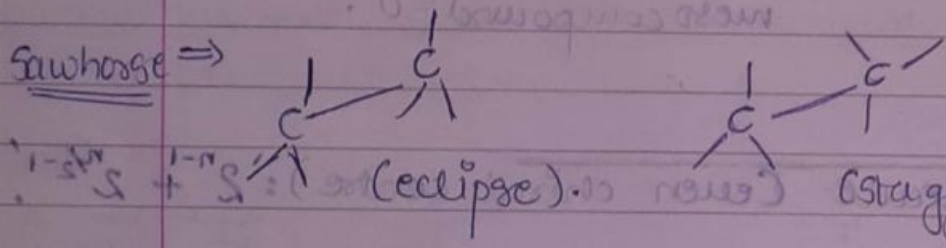 Sawhorse ⇒
C C C C
(eclipse). (stag